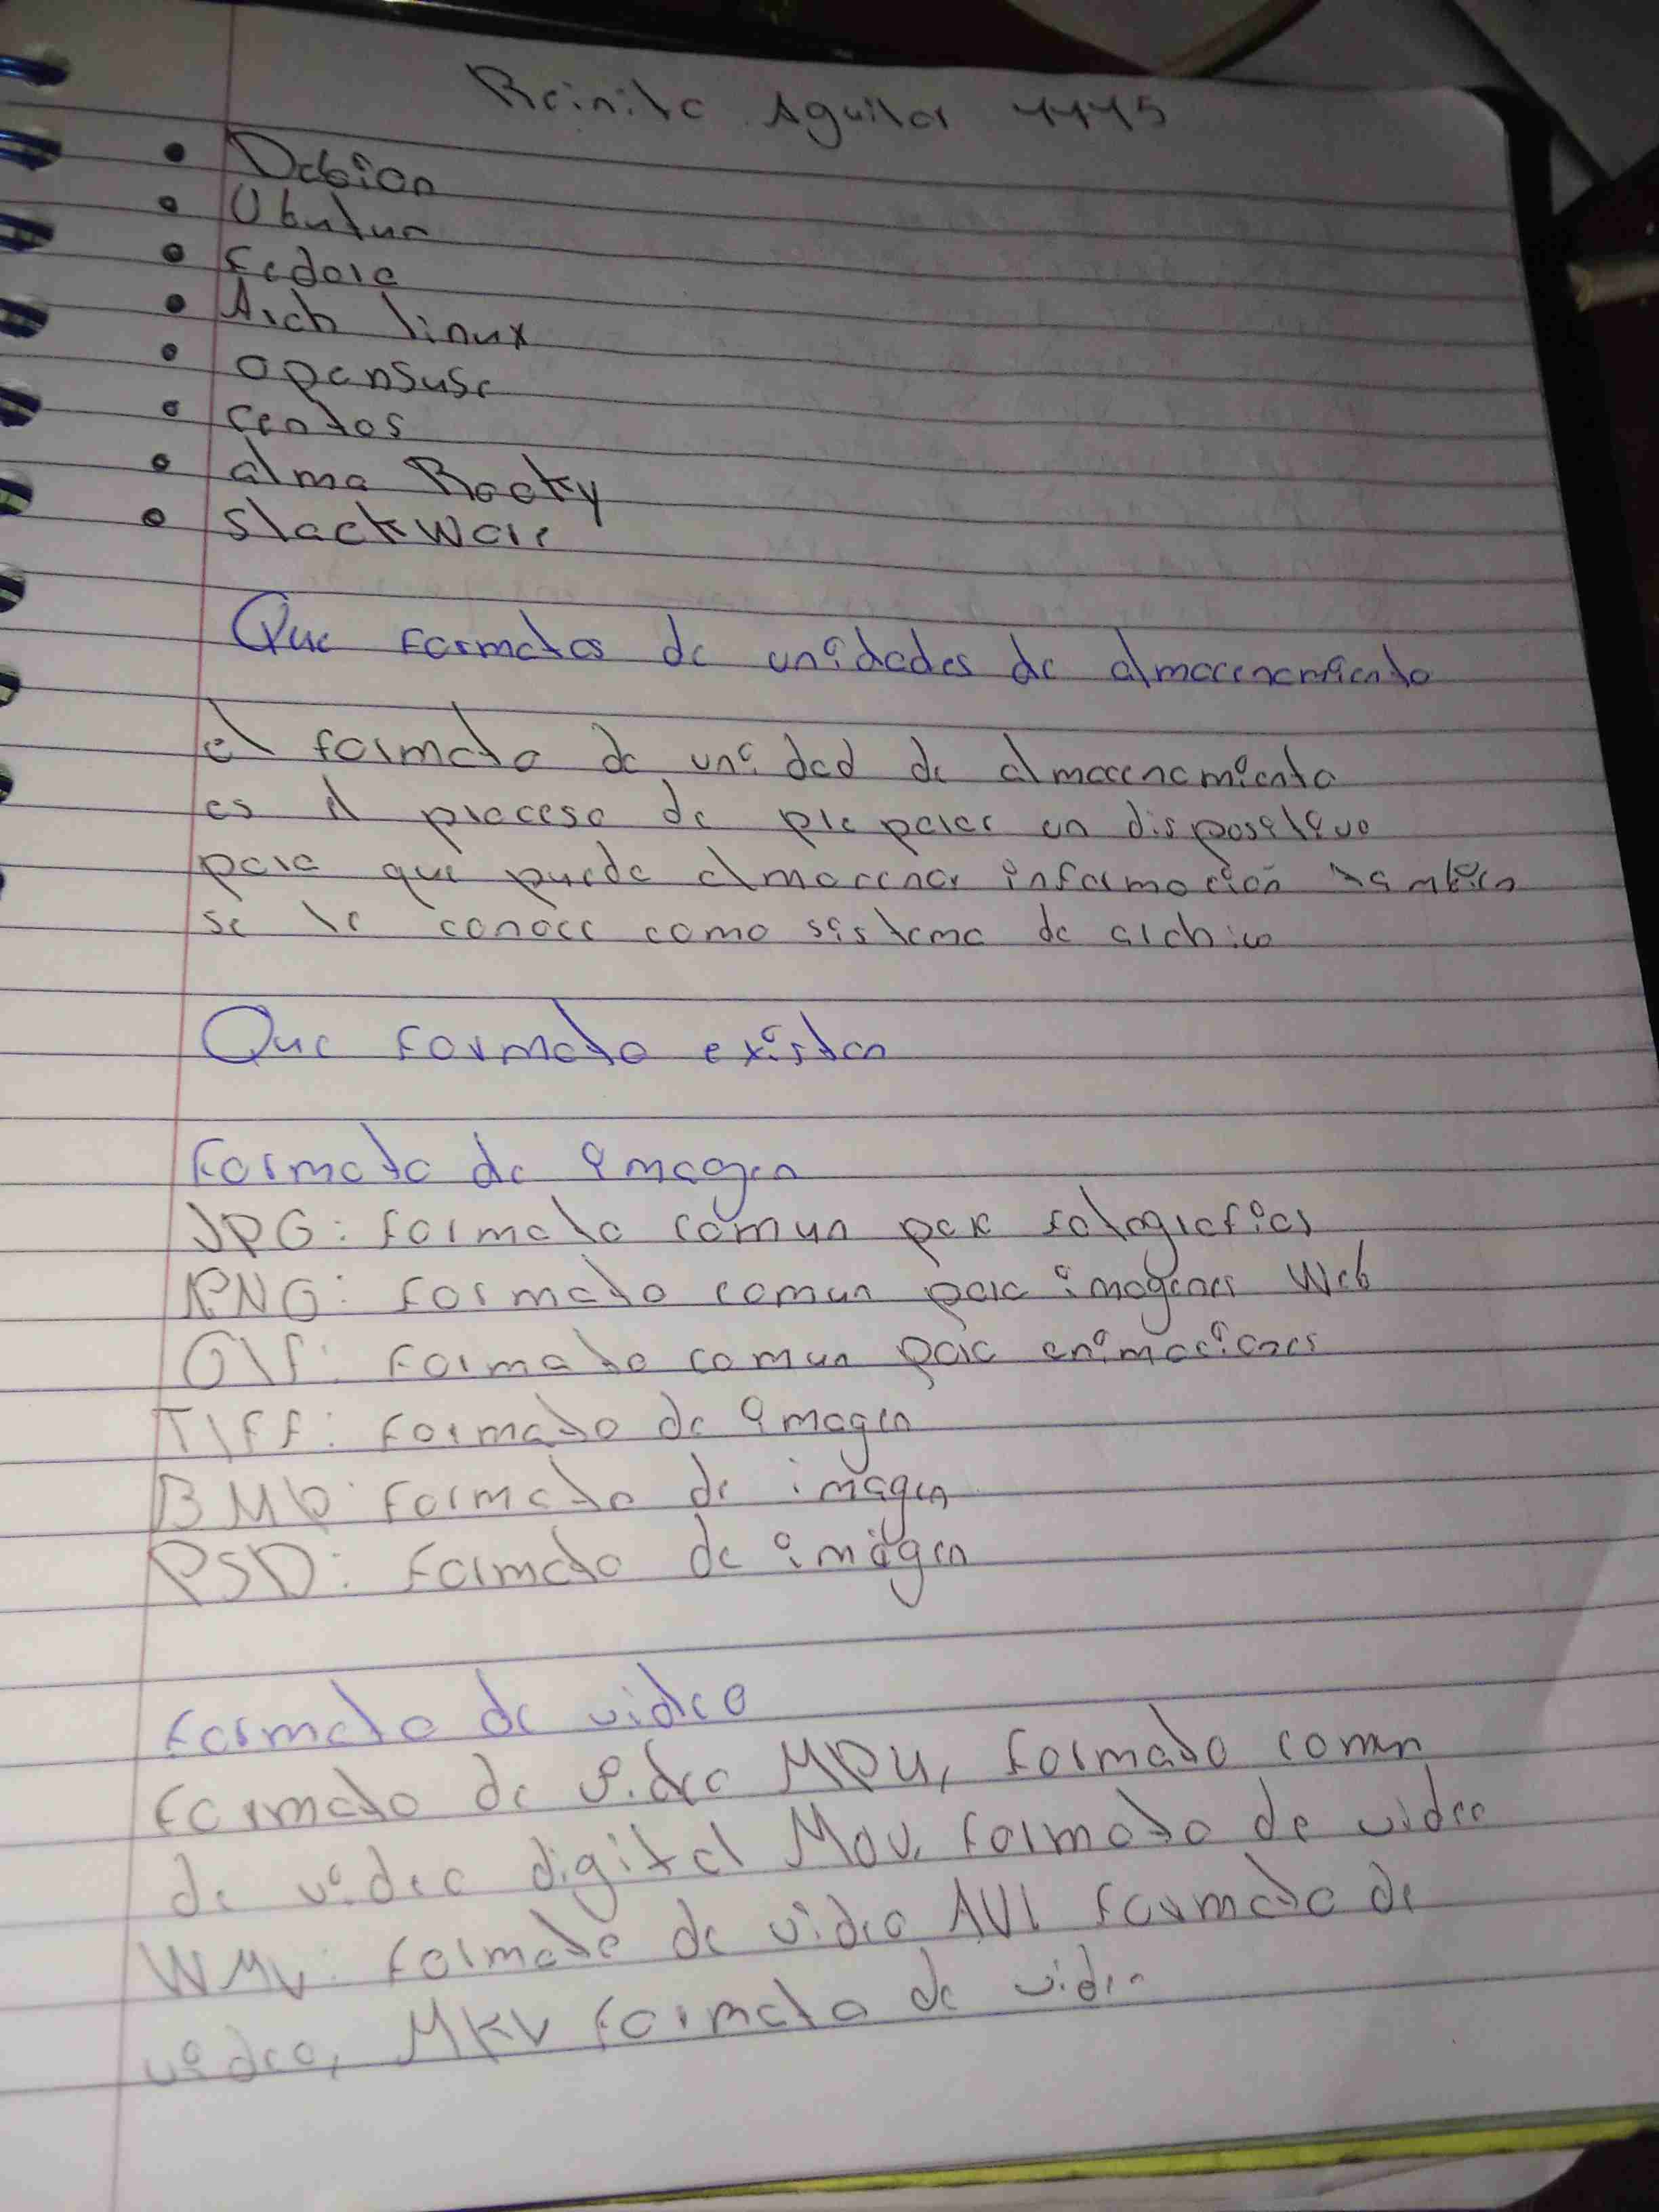 Aguilar 4445
• Debian
• Ubutun
• Fedora
• Arch linux
• opensuse
• centos
• alma Rocky
• Slackware
Que formatos de unidades de almacenamiento
el formato de unidad de almacenamiento
es el proceso de preparar un dispositivo
para que pueda almacenar información tambien
se le conoce como sistema de archivo
Que formato existen
Formato de imagen
JPG: formato comun para fotografias
PNG: formato comun para imagenes Web
GIF: formato comun para animaciones
TIFF: formato de imagen
BMP: formato de imagen
PSD: formato de imagen
formato de video
formato de video MP4, formato comun
de video digital MOV, formato de video
WMV: formato de video AVI formato de
video, MKV formato de video